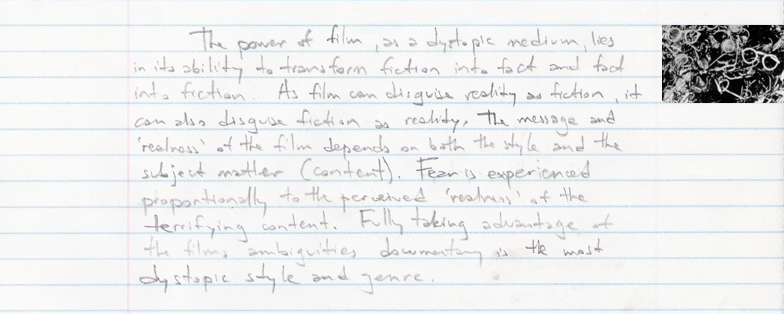 The power of film, as a dystopic medium, lies
in its ability to transform fiction into fact and fact
into fiction. As film can disguise reality as fiction, it
can also disguise fiction as reality. The message and
'realness' of the film depends on both the style and the
subject matter (content). Fear is experienced
proportionally to the perceived 'realness' of the
terrifying content. Fully taking advantage of
the films ambiguities documentary is the most
dystopic style and genre.